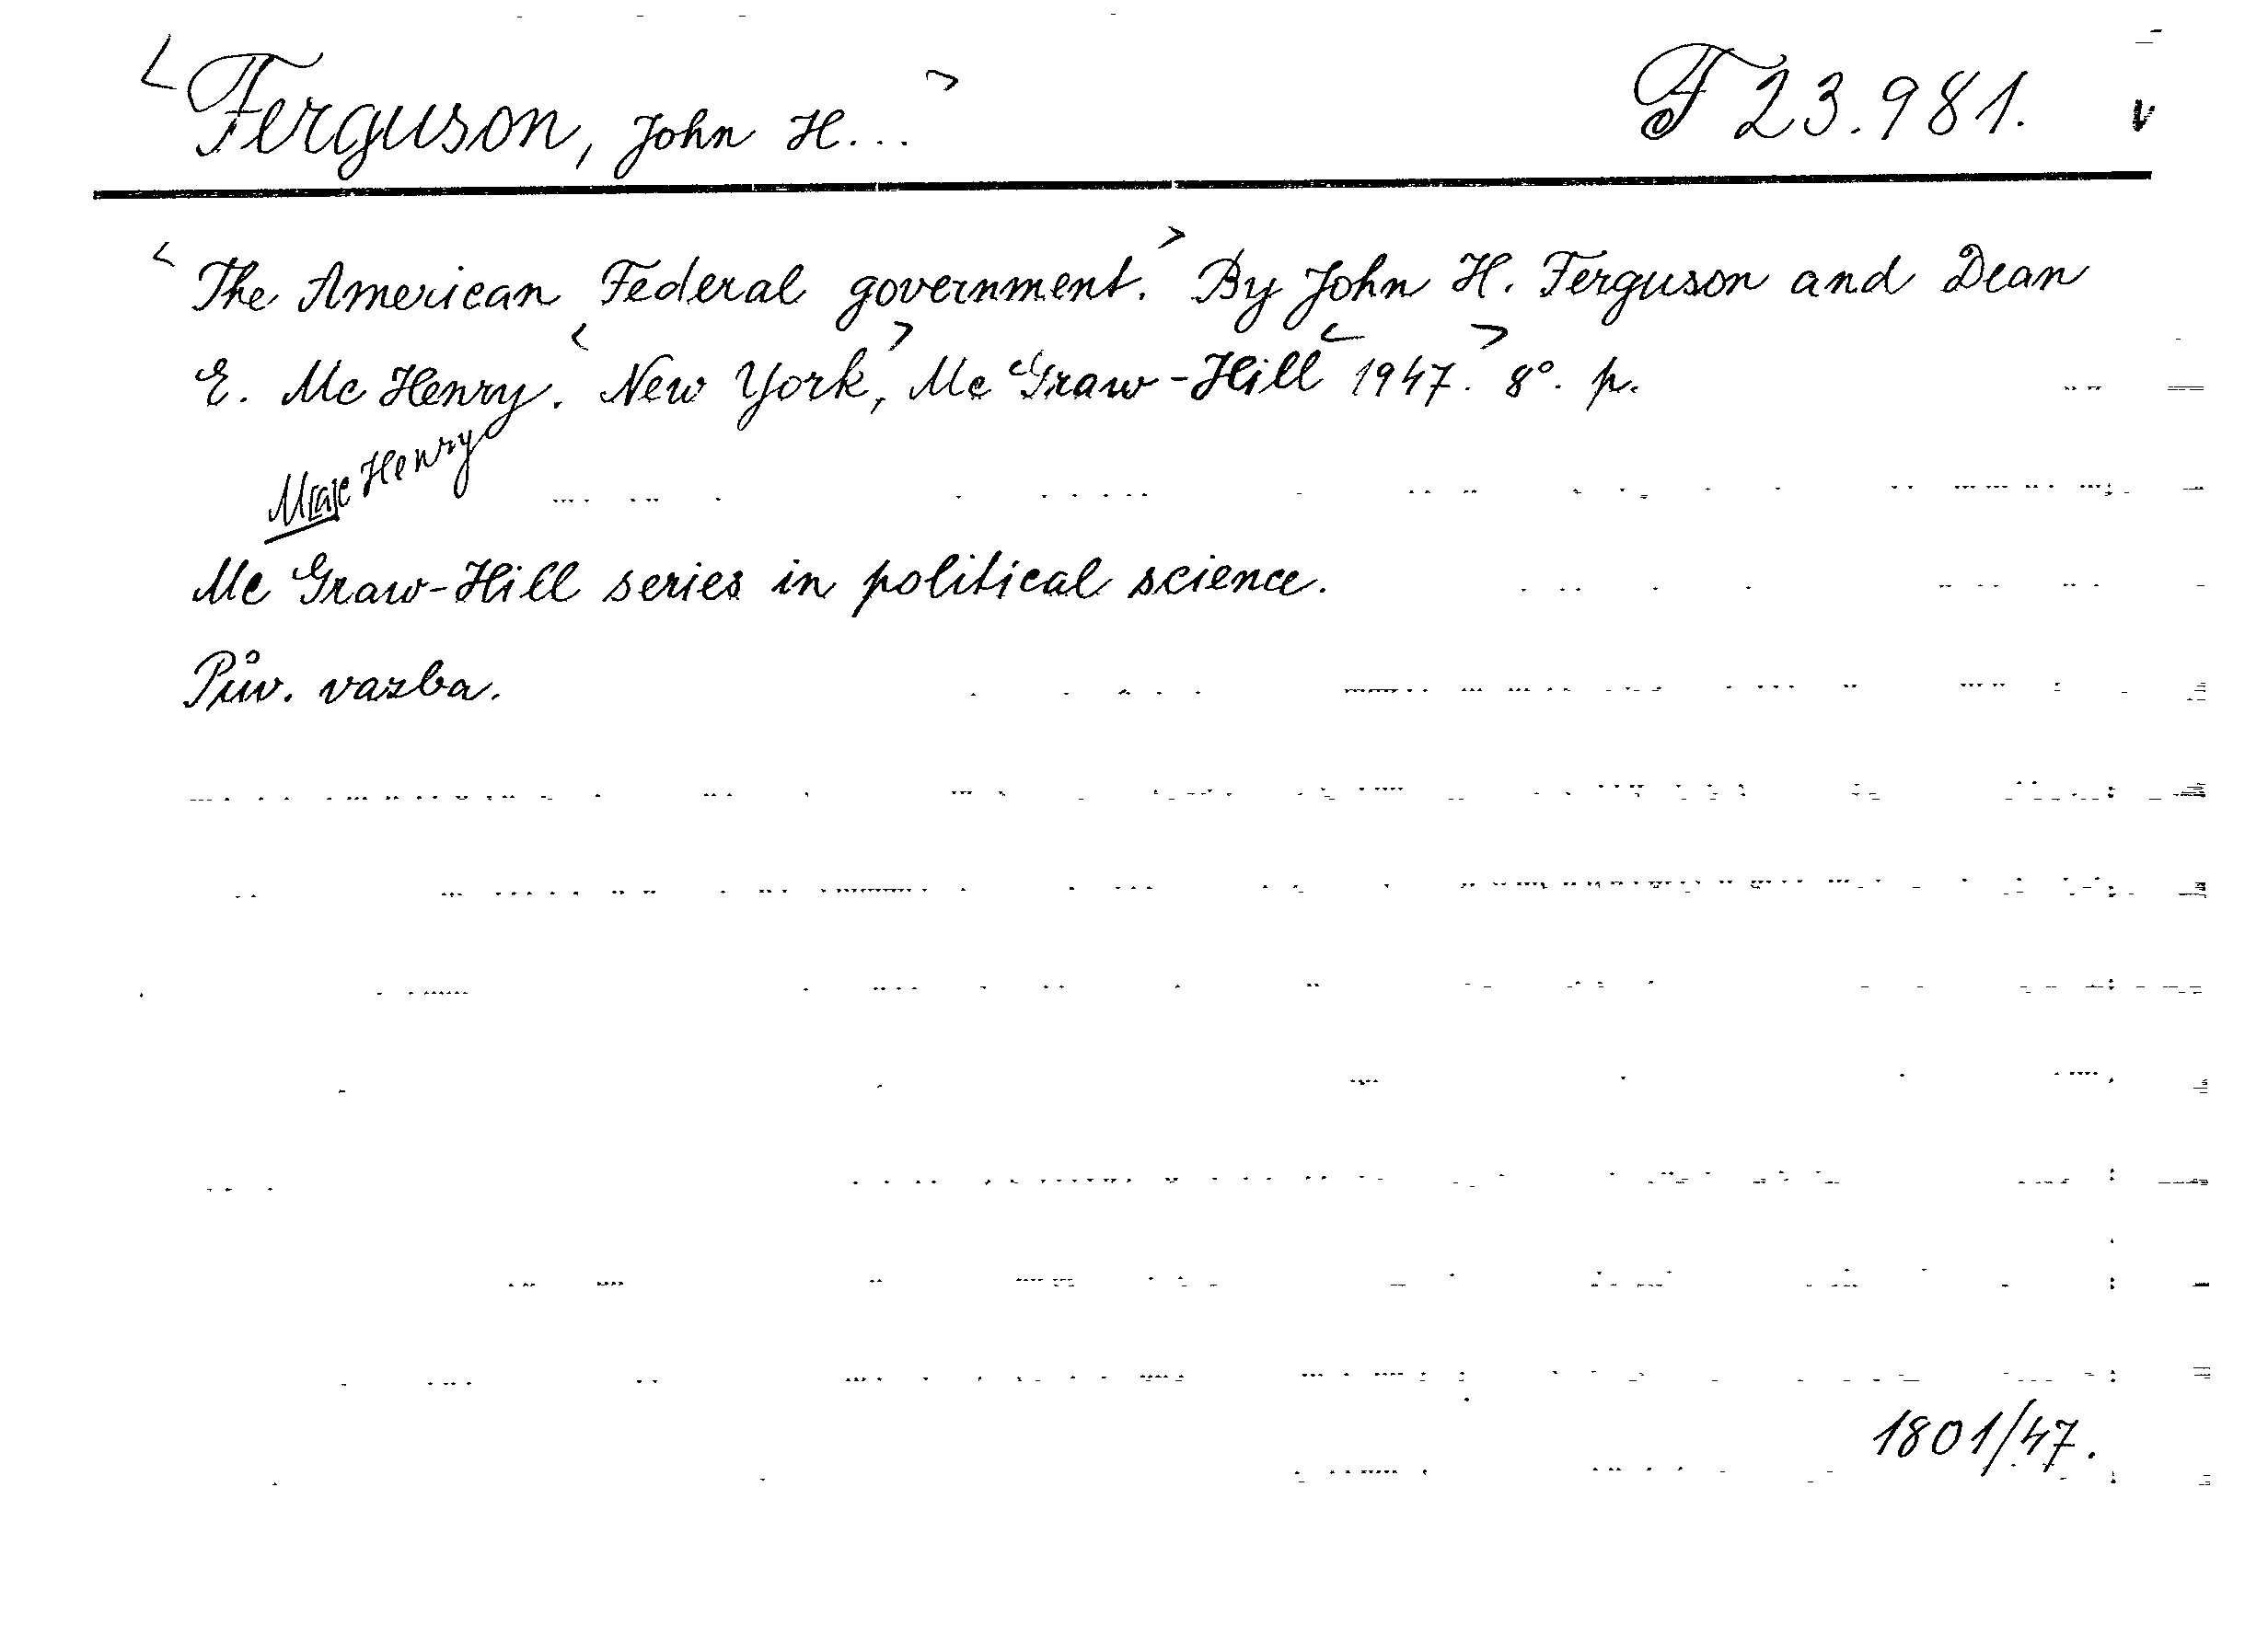 <Ferguson, John H...> F 23.981. v
<The American Federal government.> By John H. Ferguson and Dean
E. Mc Henry. <New York,> Mc Graw-Hill <1947.> 8°. p.
M[a]c Henry
Mc Graw-Hill series in political science.
Pův. vazba.
1801/47.